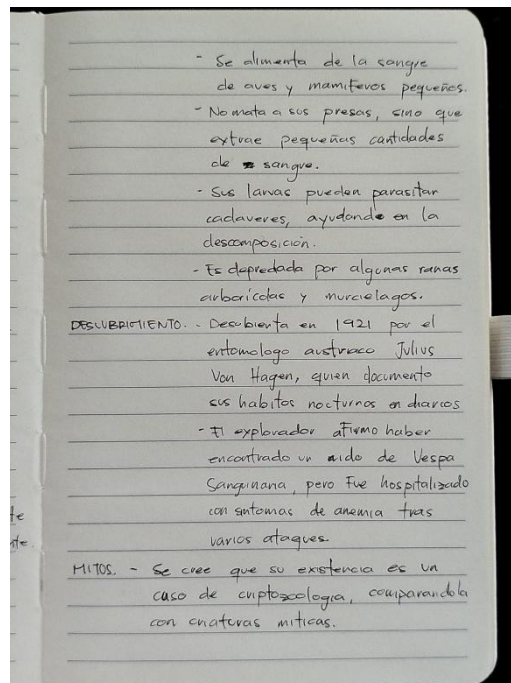 - Se alimenta de la sangre
de aves y mamiferos pequeños.
- No mata a sus presas, sino que
extrae pequeñas cantidades
de sangre.
- Sus larvas pueden parasitar
cadaveres, ayudando en la
descomposición.
- Es depredada por algunas ranas
arboricolas y murcielagos.
DESCUBRIMIENTO. - Descubierta en 1921 por el
entomologo austriaco Julius
Von Hagen, quien documento
sus habitos nocturnos en diarios
- El explorador afirmo haber
encontrado un nido de Vespa
Sanguinana, pero fue hospitalizado
con sintomas de anemia tras
varios ataques.
MITOS. - Se cree que su existencia es un
caso de criptozoologia, comparandola
con criaturas miticas.